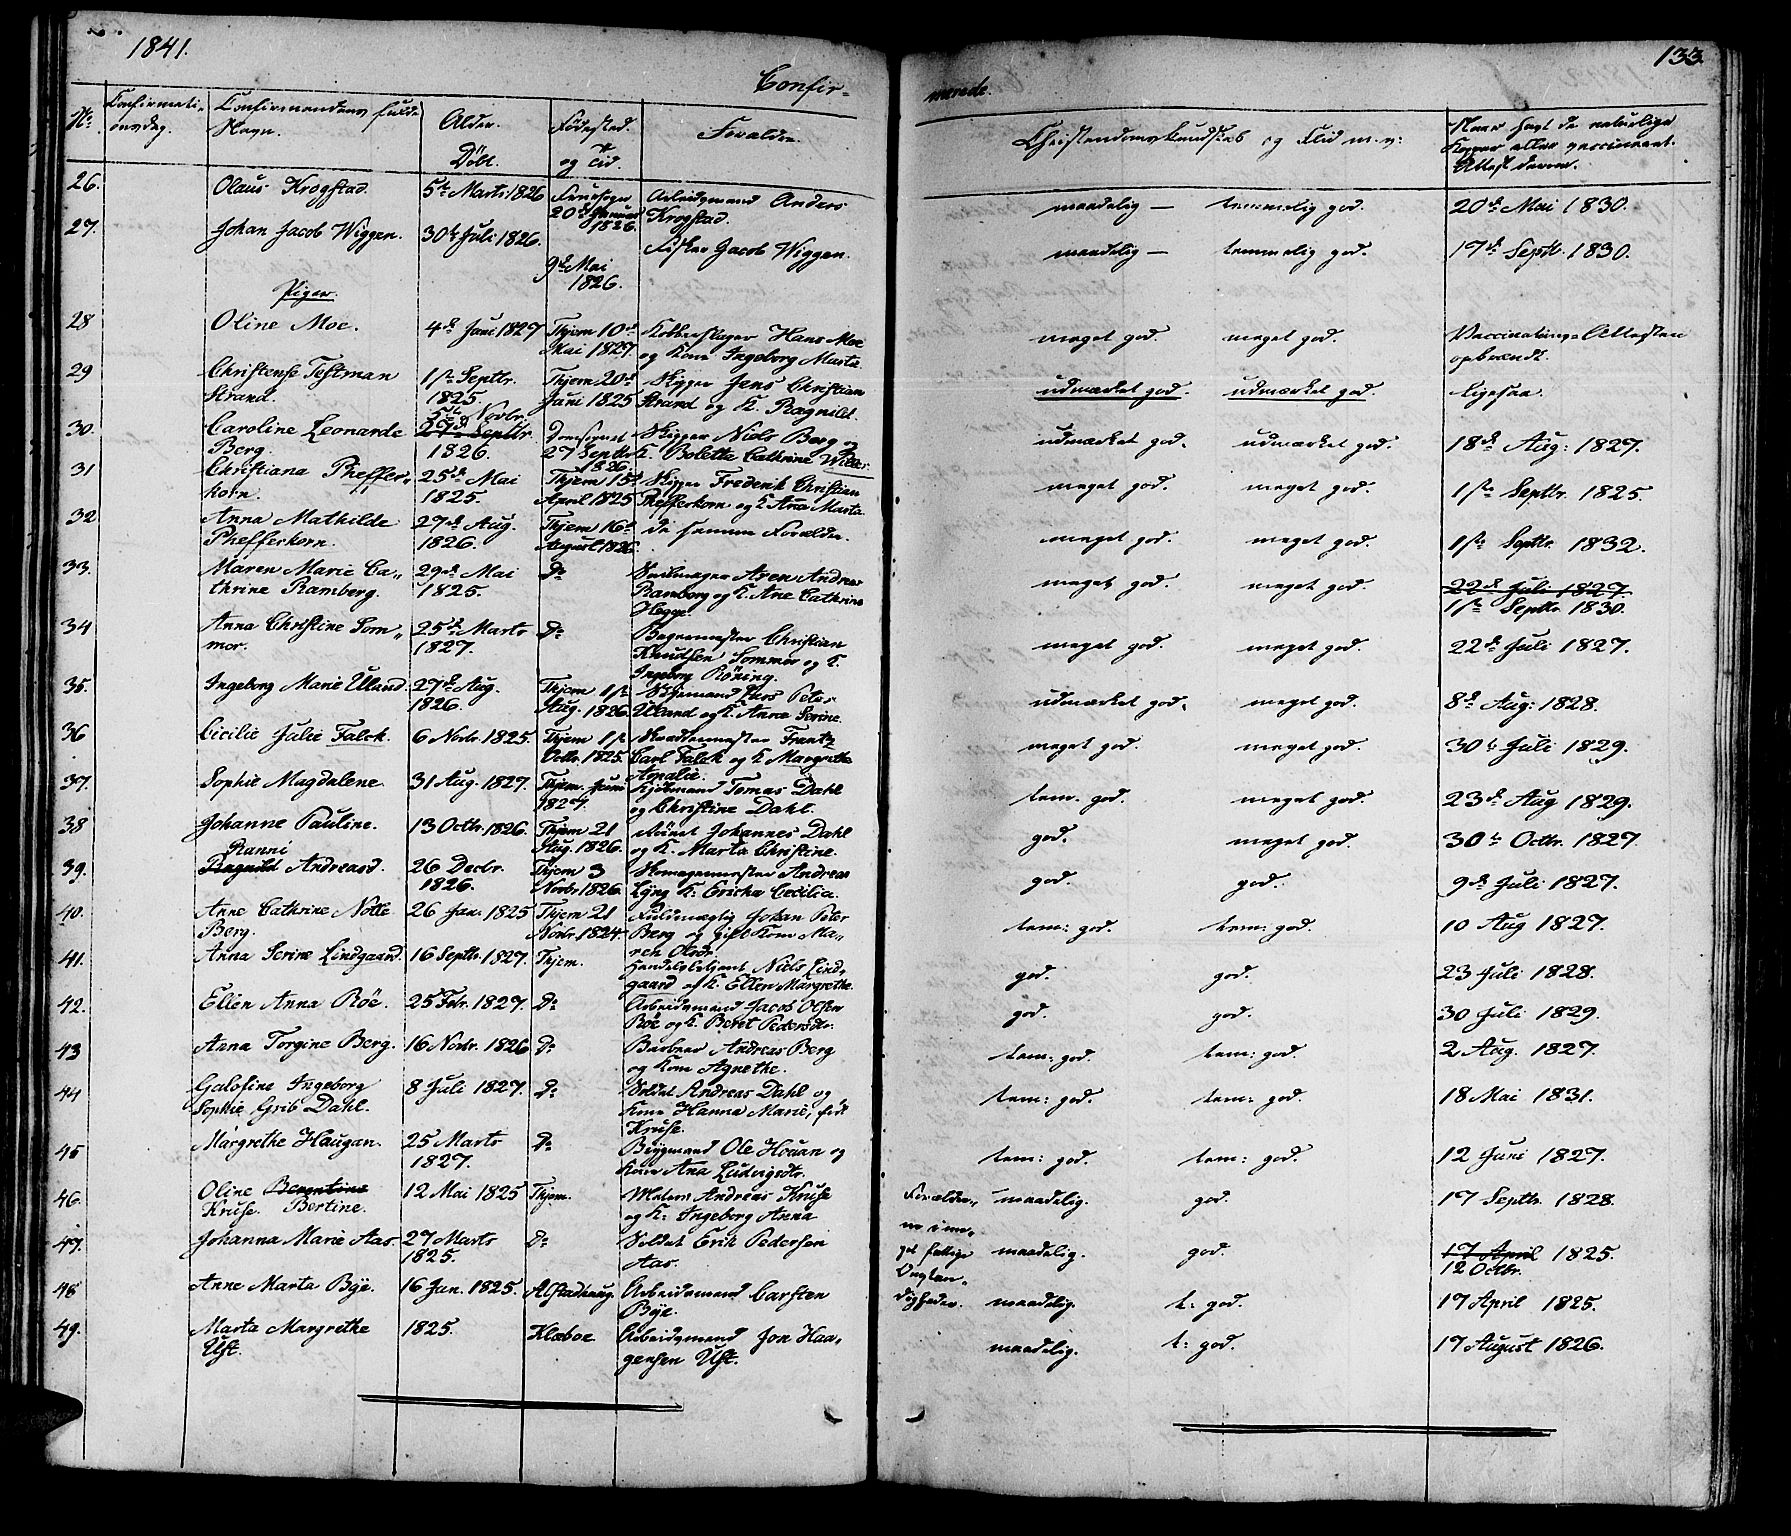 1841.
133.
Confir-
merede.
No.
Confirmati-
onsdag.
Confirmandens fulde
Navn.
Alder.
Döbt.
Födested.
og Tid.
Forældre.
Christendomskundskab og Flid m. v:
Naar havt de naturlige
Kopper eller vaccineret.
Attest derom.
26.
Olaus Krogstad.
5te Marts 1826
20de Januar
1826.
Arbeidsmand Anders
Krogstad.
maadelig —
temmelig god.
20de Mai 1830.
27.
Johan Jacob Wiggen.
30te Juli 1826.
9de Mai
1826.
Fisker Jacob Wiggen.
maadelig —
temmelig god.
17de Septbr. 1830.
Piger.
28
Oline Moe.
4de Juni 1827
Thjem 10de
Mai 1827.
Kobberslager Hans Moe
og Kone Ingeborg Marta
meget god.
meget god.
Vaccinations-Attesten
opbrændt.
29
Christense Testman
Strand.
1ste Septbr.
1825.
Thjem 20de
Juni 1825
Skipper Jens Christian
Strand og K. Ragnild.
udmærket god.
udmærket god.
ligesaa.
30.
Caroline Leonarde
Berg.
5te Novbr.
27de Septbr.
1826.
27 Septbr
1826.
Skipper Niels Berg og
K. Boletta Cathrine Willer.
udmærket god.
udmærket god.
18de Aug: 1827.
31
Christiana Pheffer-
korn.
25de Mai
1825.
Thjem 15de
April 1825
Skipper Frederik Christian
Phefferkorn og K Ana Marta.
meget god.
meget god.
1ste Septbr. 1825.
32
Anna Mathilde
Phefferkorn.
27de Aug.
1826.
Thjem 16de
August 1826.
de samme Forældre.
meget god.
meget god.
1ste Septbr. 1832.
33.
Maren Marie Ca-
thrine Ramberg.
29de Mai
1825.
Do
Seilmager Aren Andreas
Ramberg og K. Ane Cathrine
Hegge.
meget god.
meget god.
22de Juli 1827.
1ste Septbr. 1830.
34
Anna Christine Som-
mor.
25de Marts
1827.
Do
Bagermester Christian
Knudsen Sommor og K.
Ingeborg Röning.
meget god.
meget god.
22de Juli 1827.
35.
Ingeborg Marie Uland.
27de Aug.
1826.
Thjem 1ste
Aug. 1826.
Lars Peter
Uland og K. Anna Serine.
udmærket god.
meget god.
8de Aug: 1828.
36
Cicilie Julie Falck.
6 Novbr. 1825.
Thjem 1ste
Octbr. 1825.
Skræddermester Frantz
Carl Falck og K Margrethe
Amalie.
meget god.
meget god.
30te Juli 1829.
37.
Sophie Magdalene.
31 Aug. 1827.
Thjem. Juni
1827.
Kjöbmand Tomas Dahl
og Christine Dahl.
tem. god.
meget god.
23de Aug 1829.
38
Johanne Pauline.
13 Octbr. 1826.
Thjem 21
Aug. 1826.
Johannes Dahl
og K. Marta Christine.
god.
meget god.
30te Octbr. 1827.
39.
Ranni
Ragnild Andreasd.
26 Decbr.
1826.
Thjem 3
Novbr 1826.
Skomagermester Andreas
Lyng K: Ericka Cecilia.
god.
god.
9de Juli 1827.
40.
Anne Cathrine Nolle
Berg.
26 Jan. 1825
Thjem 21
Novbr. 1824.
Fuldmægtig Johan Peter
Berg og gift Kone Ma-
ren Olsdr.
tem: god.
tem: god.
10 Aug 1827.
41.
Anna Serine Lindgaard.
16 Septbr. 1827.
Thjem.
Handelsbetjent Niels Lind-
gaard og K. Ellen Margrethe.
god.
god.
23 Juli 1828.
42.
Elien Anna Röe.
25 Febr. 1827.
Do
Arbeidsmand Jacob Olsen
Röe og K. Beret Pedersdtr.
god.
god.
30 Juli 1829.
43
Anna Torgine Berg.
16 Novbr. 1826
Do
Andreas Berg
og Kone Agnethe.
tem: god.
tem: god.
2 Aug. 1827.
44
Galofine Ingeborg
Sophie Grib Dahl.
8 Juli 1827.
Do
Soldat Andreas Dahl og
Kone Hanna Marie, föd
Kruse.
tem: god.
tem: god.
18 Mai 1831.
45
Margrethe Haugan.
25 Marts
1827.
Do
Bÿgmand Ole Houan og
Kone Ana Ludvigsdtr.
tem: god.
tem: god.
12 Juni 1827.
46.
Oline Berentine
Kruse. Bertine.
12 Mai 1825
Thjem.
Andreas Kruse
og K: Ingeborg Anna
Forældre-
ne i me-
get fattige
Omstæn-
digheder.
maadelig.
god.
17 Septbr. 1828.
47.
Johanna Marie Aas.
27 Marts
1825.
Do
Soldat Erik Pedersen
Aas.
maadelig.
god.
17 April 1825.
12 Octbr.
48
Anne Marta Bÿe.
16 Jan. 1825.
Alstadhaug.
Arbeidsmand Carsten
Bÿe.
maadelig.
t: god.
17 April 1825.
49.
Marta Margrethe
Ust.
1825.
Klæboe
Arbeidsmand Jon Haa-
gensen Ust.
maadelig.
t: god.
17 August 1826.